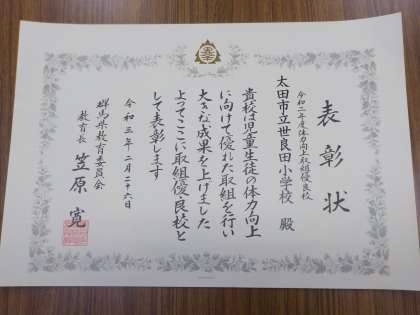 表彰状
令和二年度体力向上取組優良校
太田市立世良田小学校 殿
貴校は児童生徒の体力向上
に向けて優れた取組を行い
大きな成果を上げました
よってここに取組優良校と
して表彰します
令和三年二月二十六日
群馬県教育委員会
教育長 笠原 寛